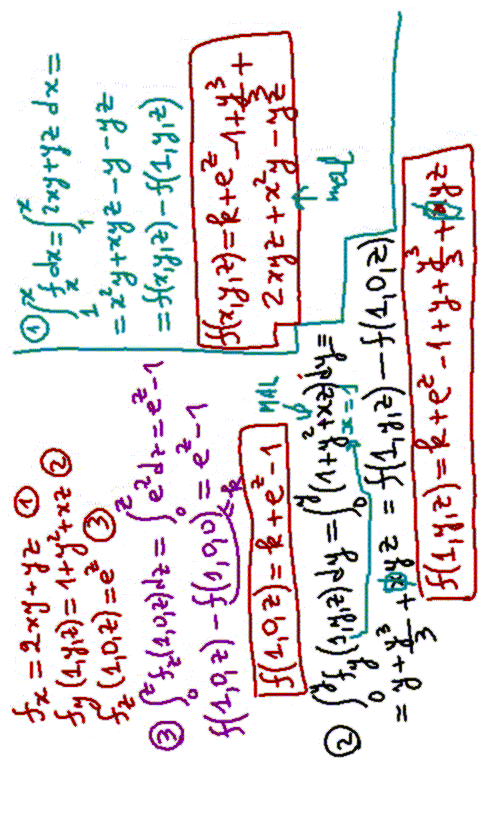 f_x = 2xy+yz ①
f_y (1,y,z) = 1+y²+xz ②
f_z (1,0,z) = e^z ③
③ ∫_0^z f_z(1,0,z)dz = ∫_0^z e^z dz = e^z-1
f(1,0,z) - f(1,0,0) = e^z-1
=k
f(1,0,z) = k+e^z-1
MAL
② ∫_0^y f_y(1,y,z)dy = ∫_0^y (1+y²+xz)dy =
x=1
= y+y³/3+xyz = f(1,y,z) - f(1,0,z)
f(1,y,z) = k+e^z-1+y+y³/3+xyz
① ∫_1^x f_x dx = ∫_1^x 2xy+yz dx =
= x²y+xyz-y-yz
= f(x,y,z) - f(1,y,z)
f(x,y,z) = k+e^z-1+y³/3+
2xyz+x²y-yz
MAL